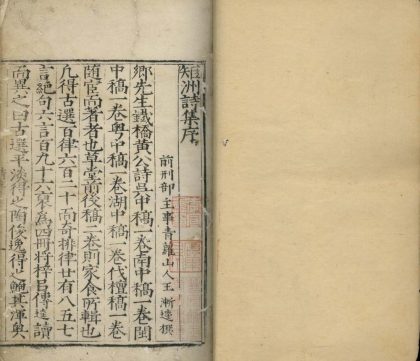 矩洲詩集序
前刑部主事青蘿山人王漸逵撰
鄉先生鐵橋黃公詩吳中稿一卷南中稿一卷閩
中稿一卷粵中稿一卷湖中稿一卷伐檀稿一卷
隨宦而著者也草堂前後稿二卷則家食所輯也
凡得古選百律六百二十而奇排律廿有八五七
言絕句六言百九十六裒為四冊將梓㠯傳逵讀
而異之曰古選平淡得之陶俊逸得之鮑其渾奧